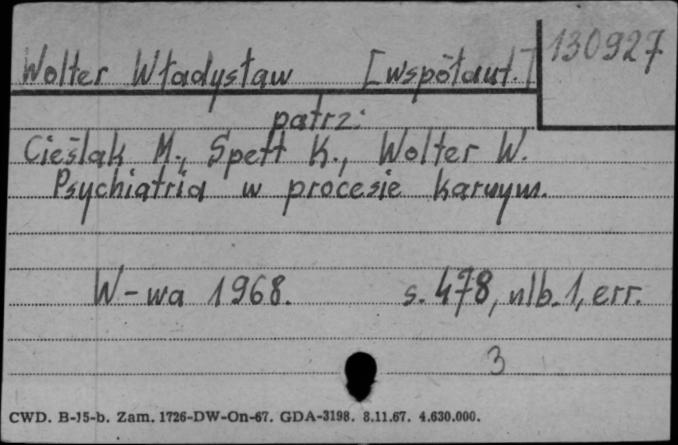 130927
Wolter Władysław [współaut.]
patrz:
Cieślak M., Spett K., Wolter W.
Psychiatria w procesie karnym.
W-wa 1968. s. 478, nlb. 1, err.
3
CWD. B-15-b. Zam. 1726-DW-On-67. GDA-3198. 8.11.67. 4.630.000.